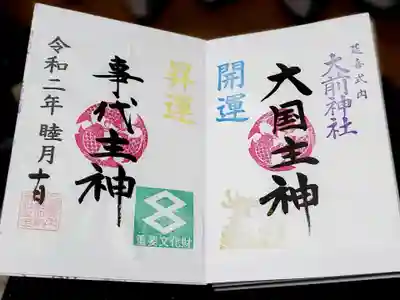 延喜式内
大前神社
大国主神
開運
昇運
事代主神
重要文化財
令和二年睦月十日